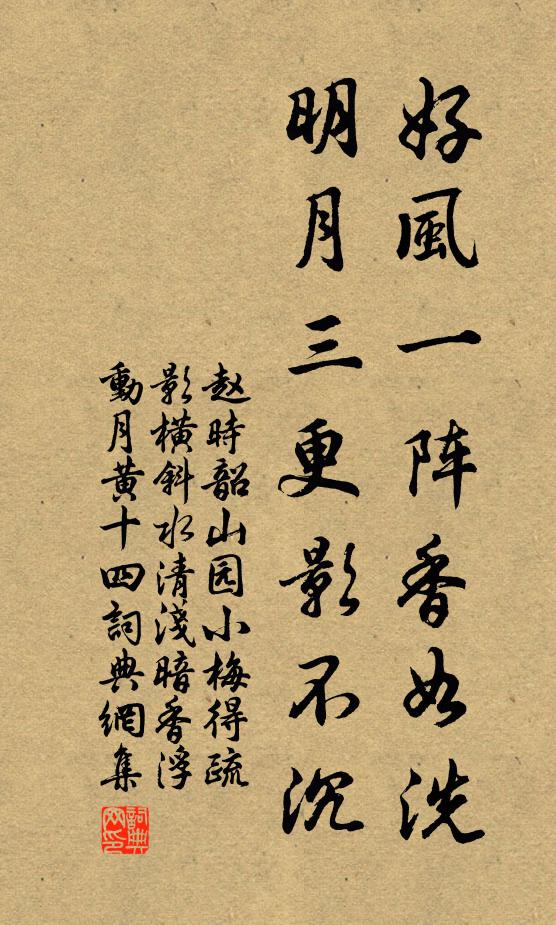 好風一阵香如洗
明月三更影不沉
赵時韶山园小梅得疏
影横斜水清淺暗香浮
動月黄十四詞典網集
詞典网印